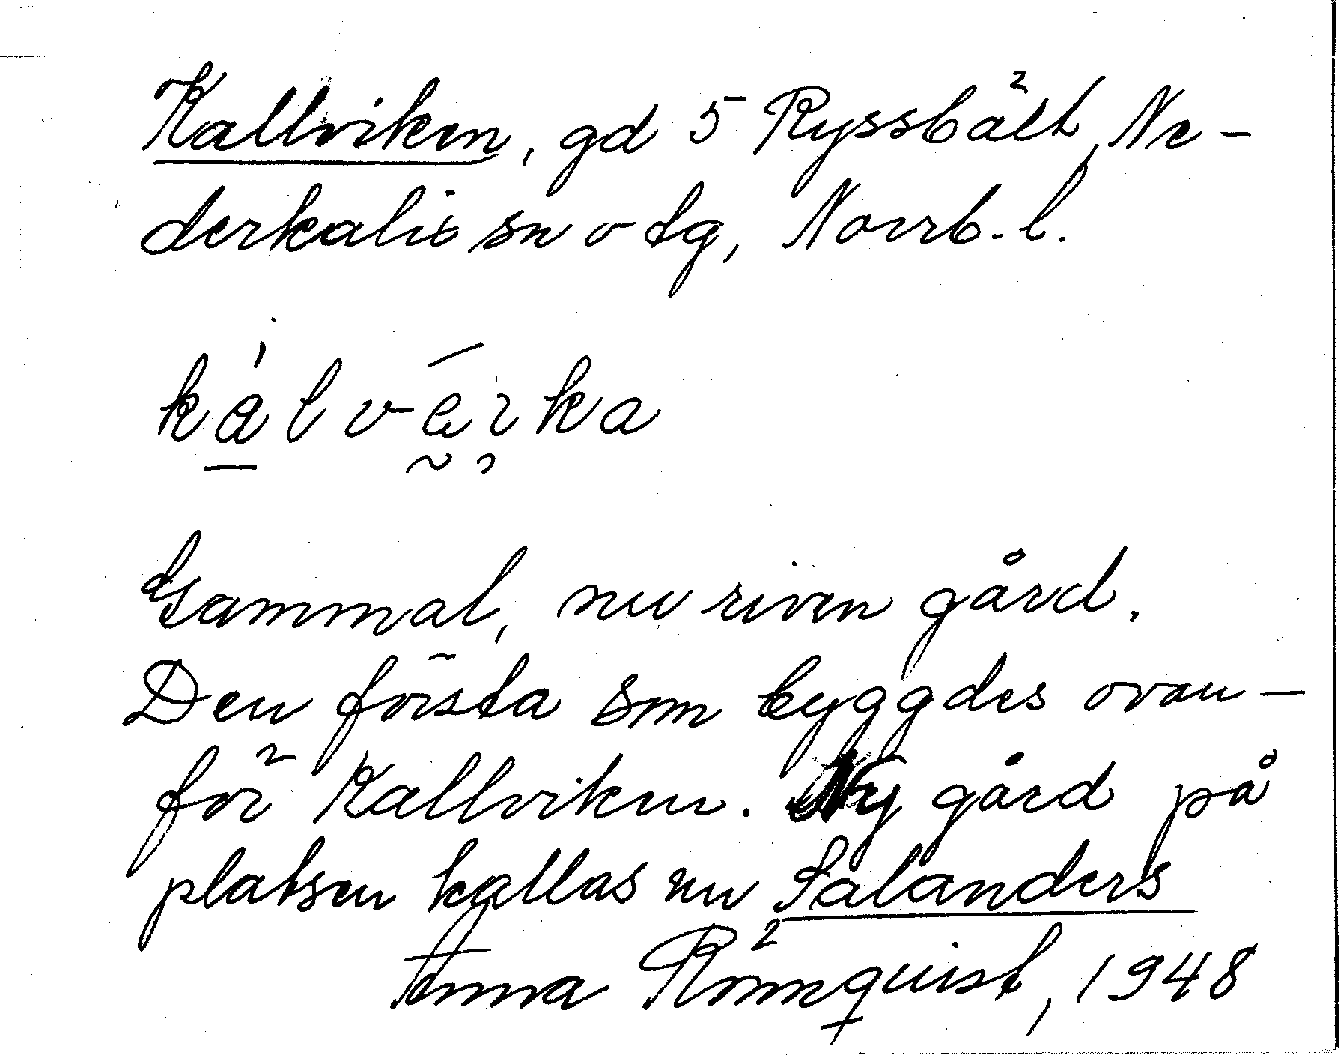 Kallviken, gd 5 Ryssbält, Ne-
derkalix sn o tg, Norrb. l.
Gammal, nu riven gård.
Den första som byggdes ovan-
för Kallviken. Ny gård på
platsen kallas nu Salanders
Anna Römquist, 1948